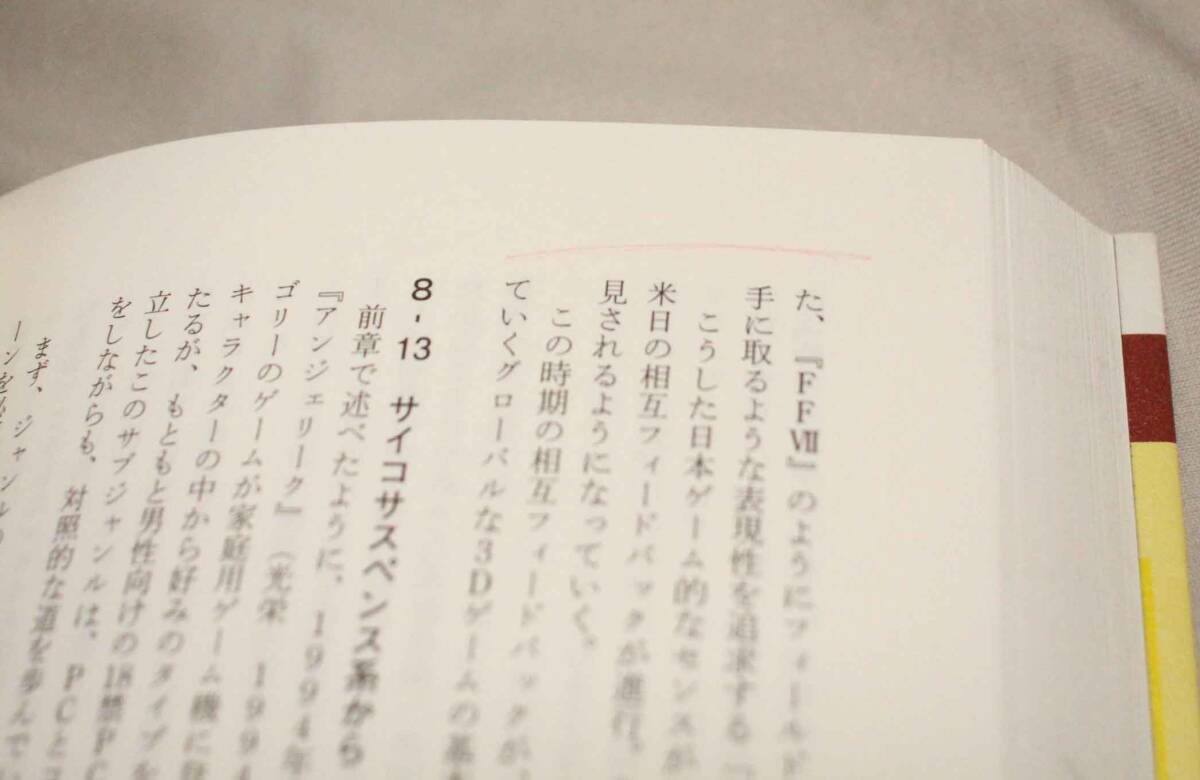 た、『FFⅦ』のようにフィールド
手に取るような表現性を追求する「
こうした日本ゲーム的なセンスが
米日の相互フィードバックが進行。
見されるようになっていく。
この時期の相互フィードバックが、
ていくグローバルな3Dゲームの基
8-13 サイコサスペンス系から
前章で述べたように、1994年
『アンジェリーク』(光栄 1994
ゴリーのゲームが家庭用ゲーム機に
キャラクターの中から好みのタイプを
たるが、もともと男性向けの18禁PC
立したこのサブジャンルは、PCと
をしながらも、対照的な道を歩んで
まず、ジャンル
ーンを